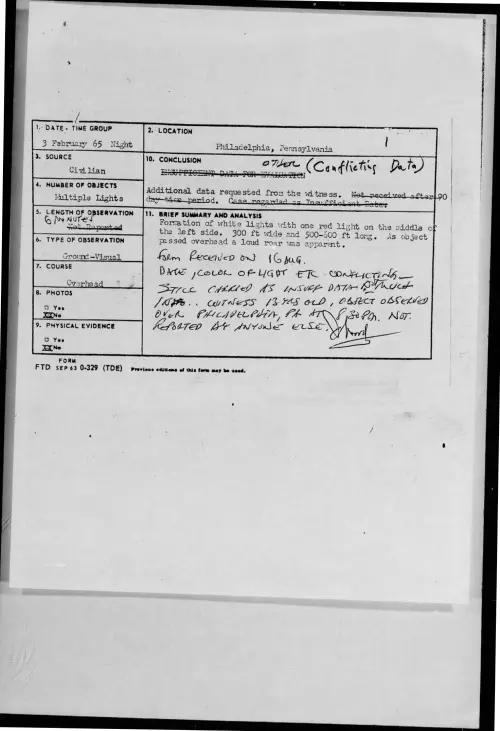 1. DATE - TIME GROUP
3 February 65 Night
2. LOCATION
Philadelphia, Pennsylvania
3. SOURCE
Civilian
10. CONCLUSION
OTHER (Conflicting Data)
INSUFFICIENT DATA FOR EVALUATION
4. NUMBER OF OBJECTS
Multiple Lights
Additional data requested from the witness. Not received after 90
day time period. Case regarded as Insufficient Data.
5. LENGTH OF OBSERVATION
6 MINUTES
Not Reported
11. BRIEF SUMMARY AND ANALYSIS
Formation of white lights with one red light on the middle of
the left side. 300 ft wide and 500-600 ft long. As object
passed overhead a loud roar was apparent.
6. TYPE OF OBSERVATION
Ground-Visual
FORM RECEIVED ON 16 AUG.
7. COURSE
Overhead
DATE, COLOR OF LIGHT ETC CONFLICTING
STILL CARRIED AS INSUFF DATA
WITNESS 13 YRS OLD, OBJECT OBSERVED
OVER PHILADELPHIA, PA AT 8:30 PM. NOT
REPORTED BY ANYONE ELSE.
8. PHOTOS
Yes
No
9. PHYSICAL EVIDENCE
Yes
No
FORM
FTD SEP 63 0-329 (TDE) Previous editions of this form may be used.